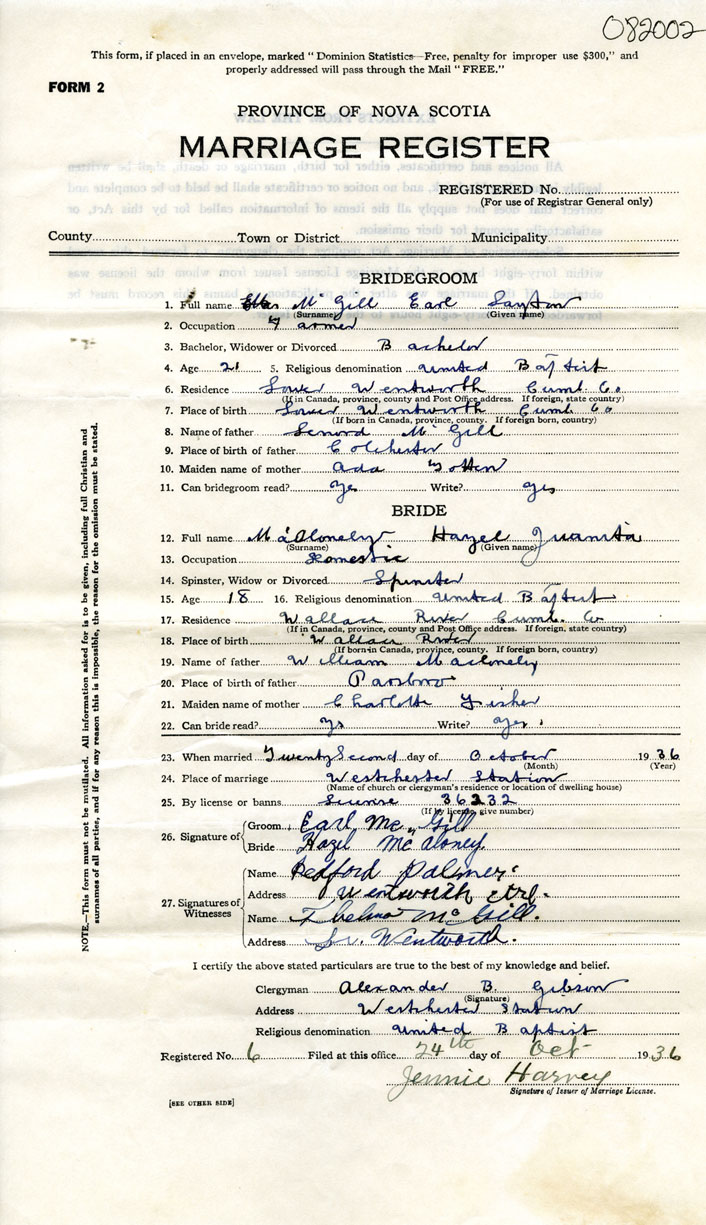 082002
This form, if placed in an envelope, marked "Dominion Statistics—Free, penalty for improper use $300," and
properly addressed will pass through the Mail "FREE."
FORM 2
PROVINCE OF NOVA SCOTIA
MARRIAGE REGISTER
REGISTERED No.
(For use of Registrar General only)
County Town or District Municipality
BRIDEGROOM
1. Full name Mc Gill Earl
(Surname) (Given name)
2. Occupation Farmer
3. Bachelor, Widower or Divorced Bachelor
4. Age 21 5. Religious denomination United Baptist
6. Residence Lower Wentworth Cumb. Co
(If in Canada, province, county and Post Office address. If foreign, state country)
7. Place of birth Lower Wentworth Cumb Co
(If born in Canada, province, county. If foreign born, country)
8. Name of father Mc Gill
9. Place of birth of father Colchester
10. Maiden name of mother Ada Totten
11. Can bridegroom read? Yes Write? Yes
BRIDE
12. Full name Hazel Juanita
(Surname) (Given name)
13. Occupation Domestic
14. Spinster, Widow or Divorced Spinster
15. Age 18 16. Religious denomination United Baptist
17. Residence Wallace River Cumb. Co.
(If in Canada, province, county and Post Office address. If foreign, state country)
18. Place of birth Wallace River
(If born in Canada, province, county. If foreign born, country)
19. Name of father William
20. Place of birth of father
21. Maiden name of mother Charlotte Fisher
22. Can bride read? Yes Write? Yes
23. When married Twenty Second day of October 1936
(Month) (Year)
24. Place of marriage Westchester Station
(Name of church or clergyman's residence or location of dwelling house)
25. By license or banns 36232
(If by license, give number)
26. Signature of Groom Earl Mc Gill
Bride Hazel McAloney.
27. Signatures of Witnesses Name Bedford Palmer
Address Wentworth Ctre.
Name Thelma McGill.
Address Lr. Wentworth.
I certify the above stated particulars are true to the best of my knowledge and belief.
Clergyman Alexander B. Gibson
(Signature)
Address Westchester Station
Religious denomination United Baptist
Registered No. 6 Filed at this office 24th day of Oct 1936
Jennie Harvey
Signature of Issuer of Marriage License.
[SEE OTHER SIDE]
NOTE.—This form must not be mutilated. All information asked for is to be given, including full Christian and
surnames of all parties, and if for any reason this is impossible, the reason for the omission must be stated.